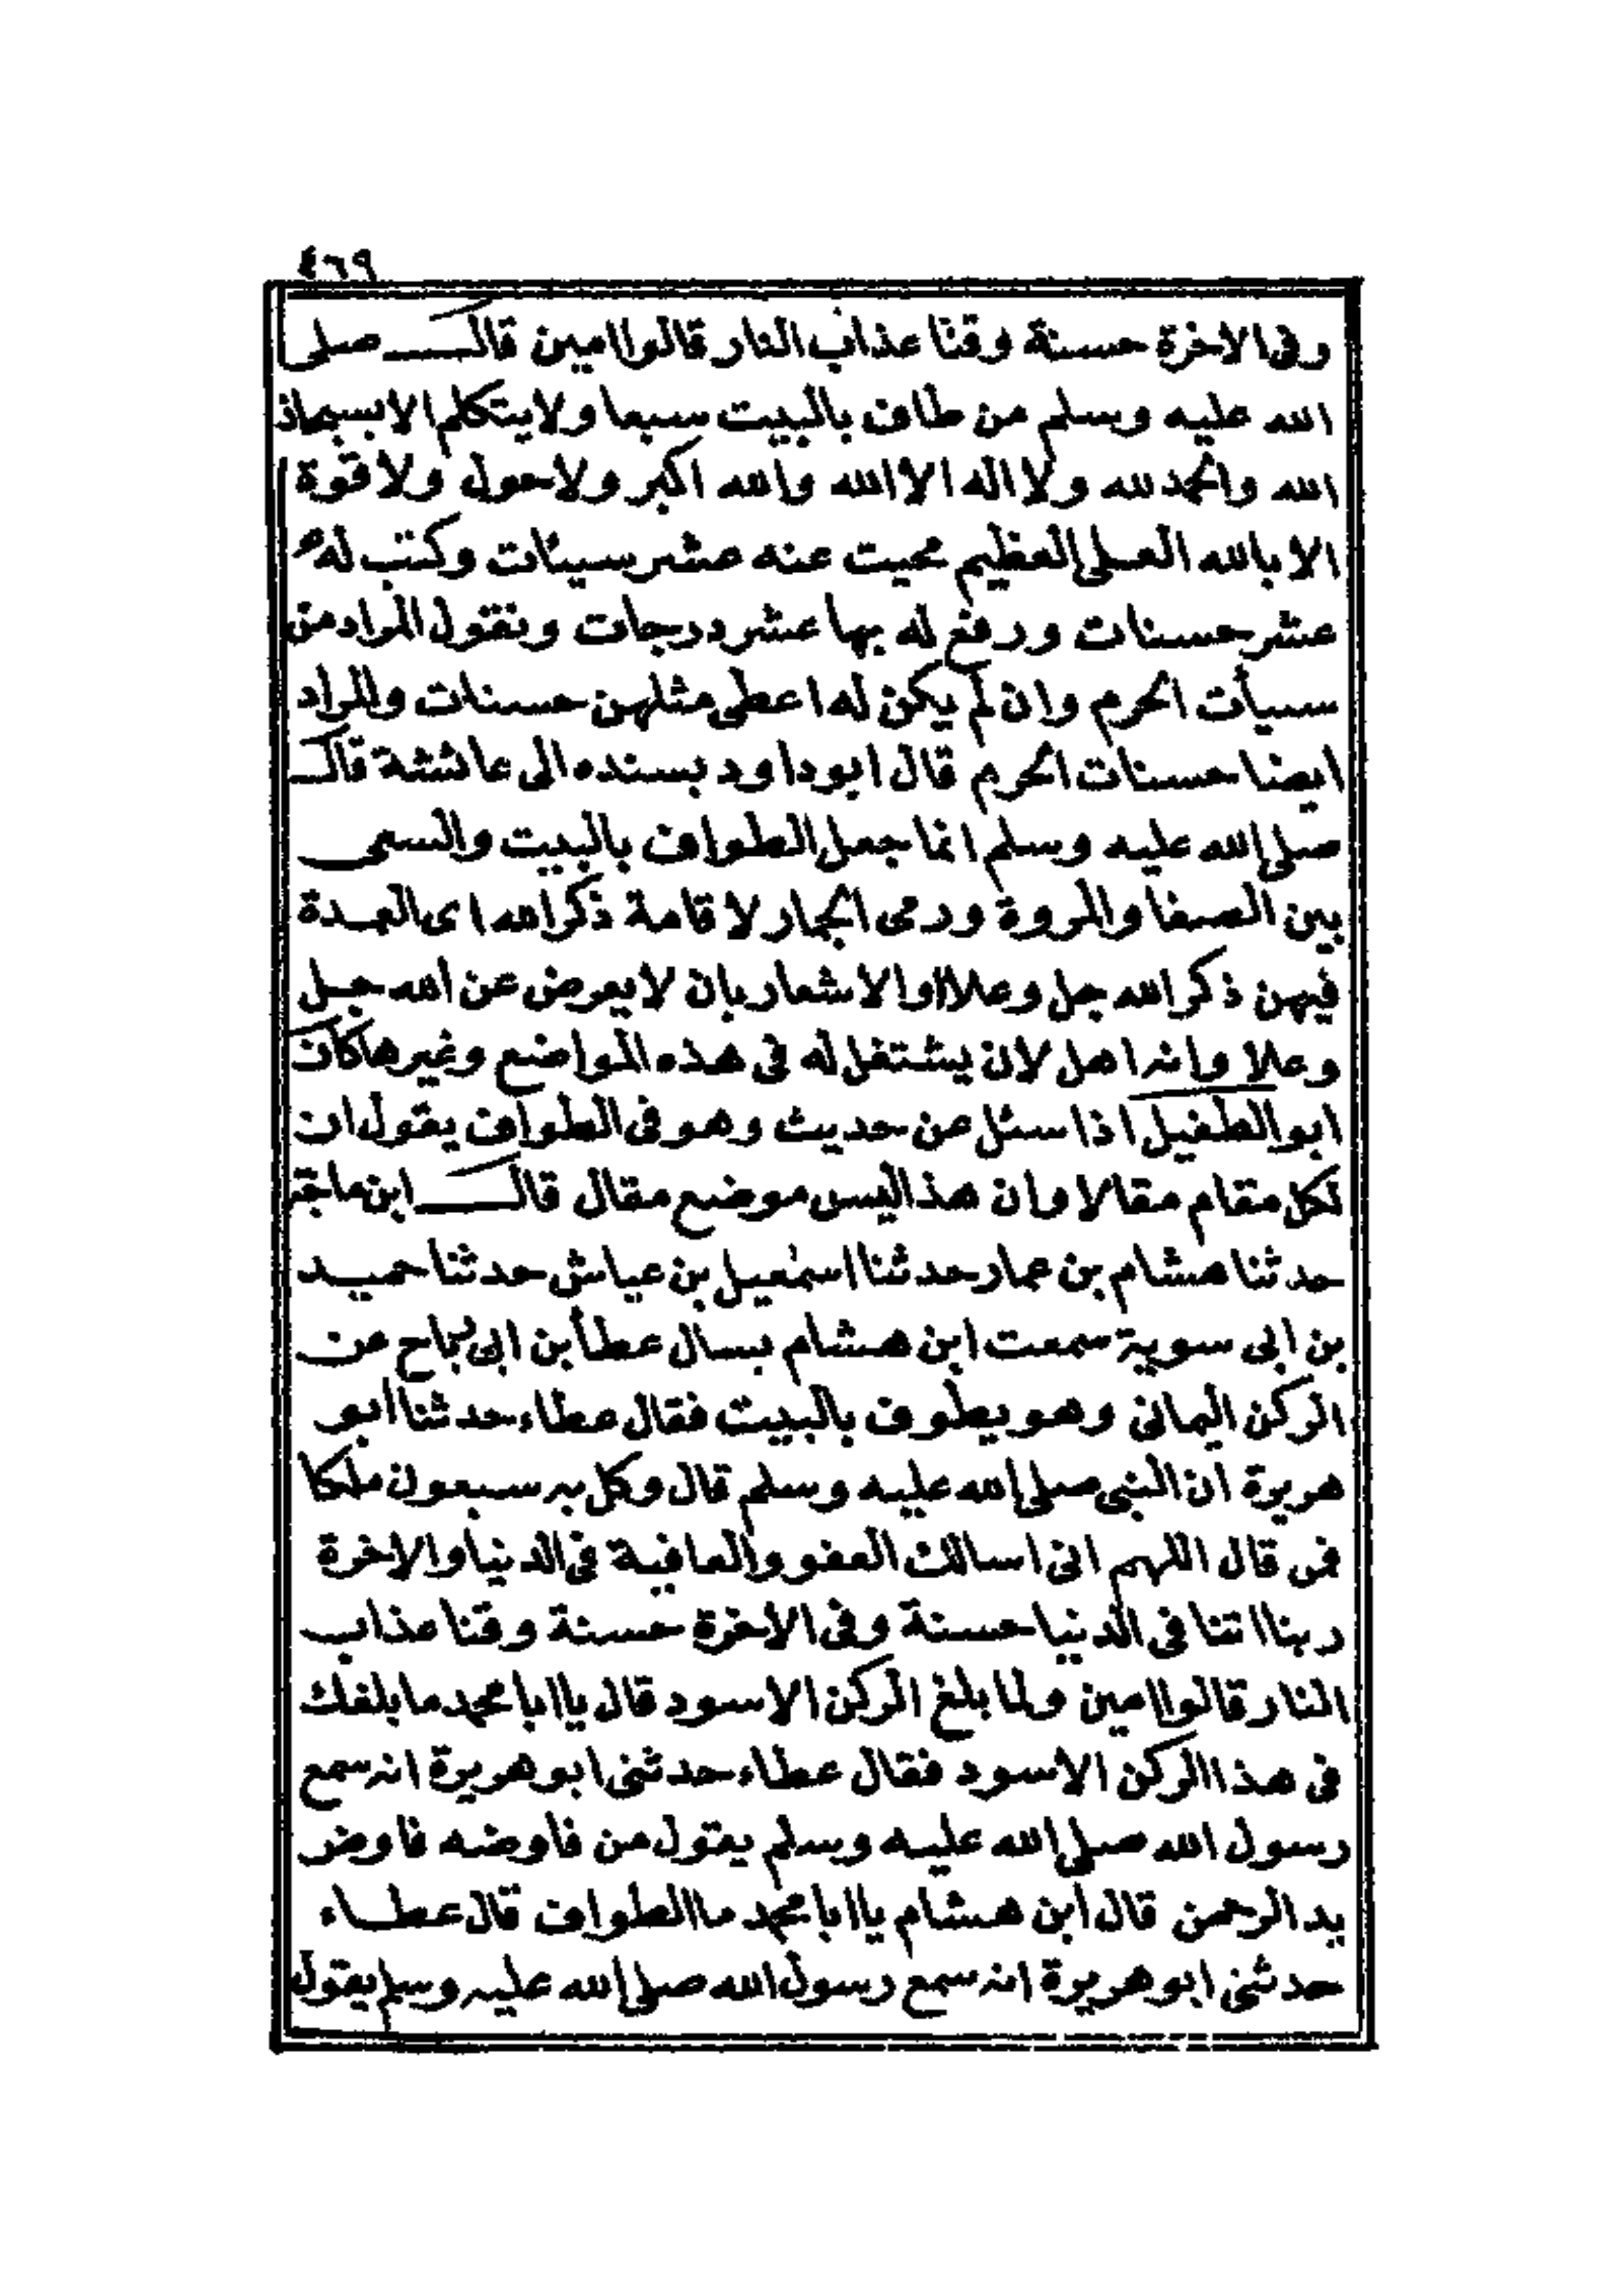 ٤٦٩
وفى الاخرة حسنة وقنا عذاب النار قالوا امين قال صلى
الله عليه وسلم من طاف بالبيت سبعا ولا يتكلم الا بسبحان
الله والحمد لله ولا اله الا الله والله اكبر ولا حول ولا قوة
الا بالله العلى العظيم محيت عنه عشر سيئات وكتب له
عشر حسنات ورفع له بها عشر درجات ونقول المراد من
سيأت الحرم وان لم يكن له اعطى مثلهن حسنات والمراد
ايضا حسنات الحرم قال ابو داود بسنده الى عائشة قال
صلى الله عليه وسلم انما جعل الطواف بالبيت والسعى
بين الصفا والمروة ورمى الجمار لاقامة ذكر الله اى العمدة
فيهن ذكر الله جل وعلا او الاشعار بان لا يعرض عن الله جل
وعلا وانه اهل لان يشتغل له فى هذه المواضع وغيرها كان
ابو الطفيل اذا سئل عن حديث وهو فى الطواف يقول ان
لكل مقام مقالا وان هذا ليس موضع مقال قال ابن ماجة
حدثنا هشام بن عمار حدثنا اسمعيل بن عياش حدثنا حميد
بن ابى سوية سمعت ابن هشام يسال عطأ بن ابى رباح عن
الركن اليمانى وهو يطوف بالبيت فقال عطاء حدثنا ابو
هريرة ان النبى صلى الله عليه وسلم قال وكل به سبعون ملكا
فمن قال اللهم انى اسالك العفو والعافية فى الدنيا والاخرة
ربنا اتنا فى الدنيا حسنة وفى الاخرة حسنة وقنا عذاب
النار قالوا امين ولما بلغ الركن الاسود قال يا ابا محمد ما بلغك
فى هذا الركن الاسود فقال عطاء حدثنى ابو هريرة انه سمع
رسول الله صلى الله عليه وسلم يقول من فاوضه فاوض
يد الرحمن قال ابن هشام يا ابا محمد ما الطواف قال عطاء
حدثنى ابو هريرة انه سمع رسول الله صلى الله عليه وسلم يقول